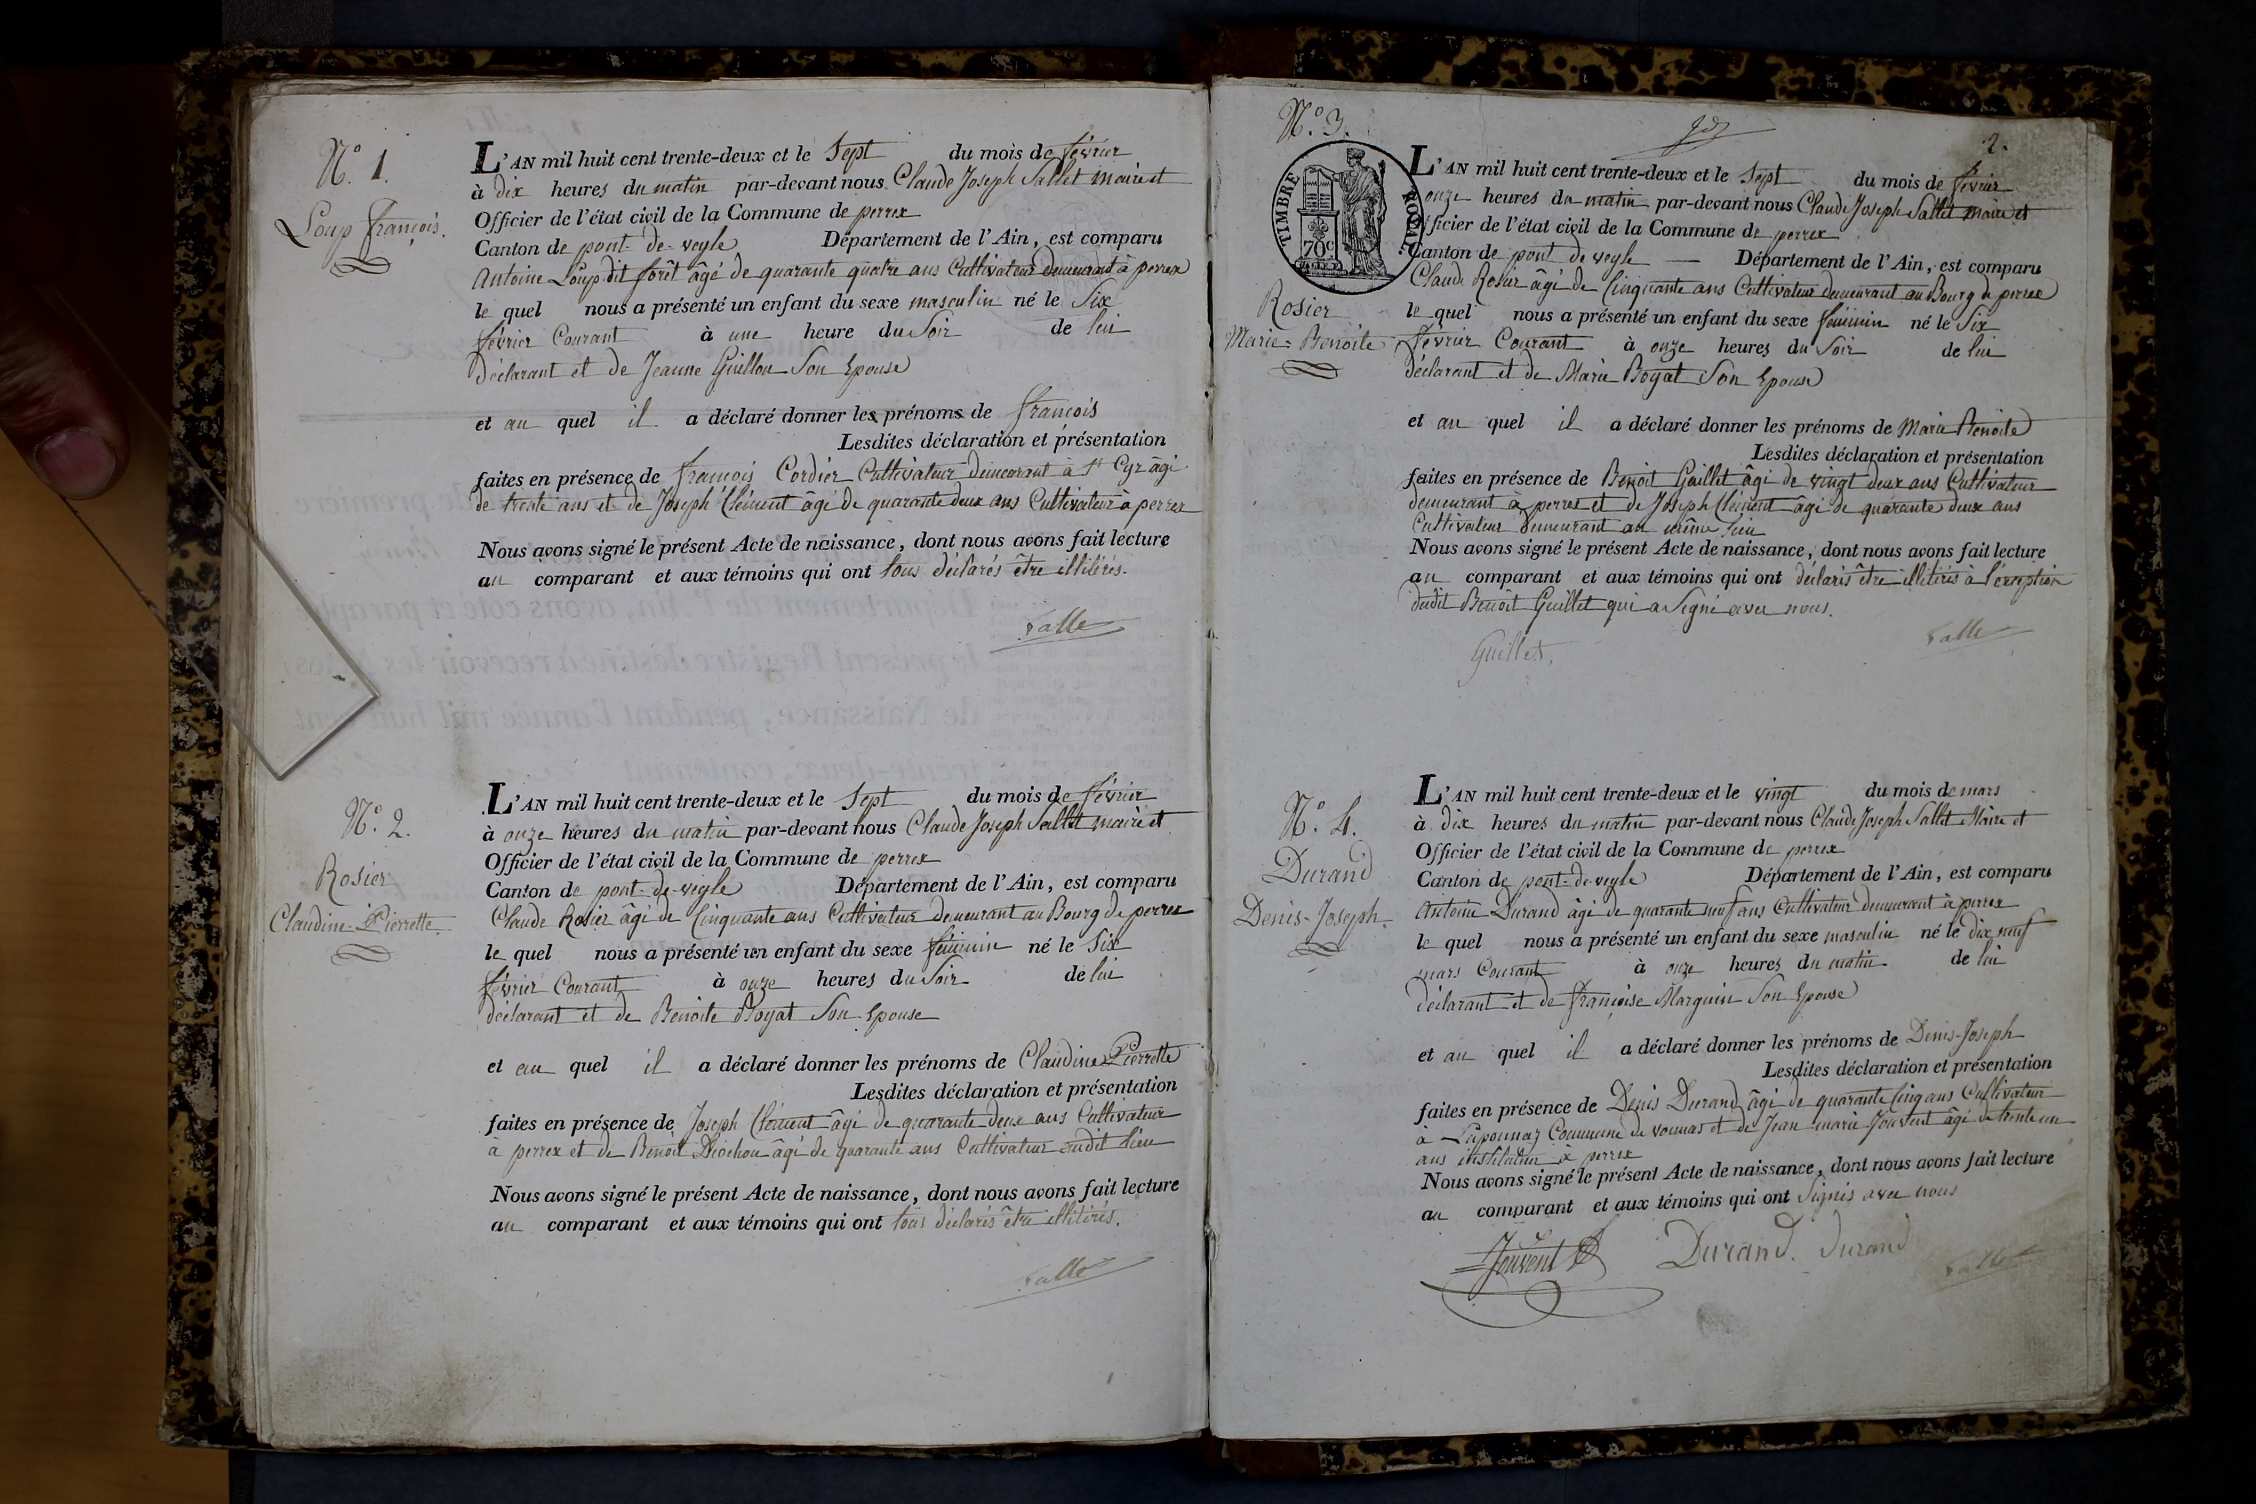 N.° 1.
Loup françois.
L'AN mil huit cent trente-deux et le Sept du mois de février
à dix heures du matin par-devant nous Claude Joseph Sallet maire et
Officier de l'état civil de la Commune de perrex
Canton de pont-de-veyle Département de l'Ain, est comparu
Antoine Loup dit forêt âgé de quarante quatre ans Cultivateur demeurant à perrex
le quel nous a présenté un enfant du sexe masculin né le Six
février Courant à une heure du Soir de lui
déclarant et de Jeanne Guillon Son Epouse
et au quel il a déclaré donner les prénoms de françois
Lesdites déclaration et présentation
faites en présence de françois Cordier Cultivateur demeurant à St Cyr âgé
de trente ans et de Joseph Clément âgé de quarante deux ans Cultivateur à perrex
Nous avons signé le présent Acte de naissance, dont nous avons fait lecture
au comparant et aux témoins qui ont tous déclarés être illitérés.
Salle
N.° 2.
Rosier
Claudine-Pierrette.
L'AN mil huit cent trente-deux et le Sept du mois de février
à onze heures du matin par-devant nous Claude Joseph Sallet maire et
Officier de l'état civil de la Commune de perrex
Canton de pont-de-veyle Département de l'Ain, est comparu
Claude Rosier âgé de Cinquante ans Cultivateur demeurant au Bourg de perrex
le quel nous a présenté un enfant du sexe féminin né le Six
février Courant à onze heures du Soir de lui
déclarant et de Benoite Boyat Son Epouse
et au quel il a déclaré donner les prénoms de Claudine Pierrette
Lesdites déclaration et présentation
faites en présence de Joseph Clément âgé de quarante deux ans Cultivateur
à perrex et de Benoit Diochon âgé de quarante ans Cultivateur audit lieu
Nous avons signé le présent Acte de naissance, dont nous avons fait lecture
au comparant et aux témoins qui ont tous déclarés être illitérés.
Salle
N.° 3.
2.
TIMBRE ROYAL
70c
Rosier
Marie-Benoite
L'AN mil huit cent trente-deux et le Sept du mois de février
onze heures du matin par-devant nous Claude Joseph Sallet maire et
fficier de l'état civil de la Commune de perrex
Canton de pont de veyle — Département de l'Ain, est comparu
Claude Rosier âgé de Cinquante ans Cultivateur demeurant au Bourg de perrex
le quel nous a présenté un enfant du sexe féminin né le Six
février Courant à onze heures du Soir de lui
déclarant et de Marie Boyat Son Epouse
et au quel il a déclaré donner les prénoms de Marie Benoite
Lesdites déclaration et présentation
faites en présence de Benoit Guillet âgé de vingt deux ans Cultivateur
demeurant à perrex et de Joseph Clément âgé de quarante deux ans
Cultivateur demeurant au même lieu
Nous avons signé le présent Acte de naissance, dont nous avons fait lecture
au comparant et aux témoins qui ont déclarés être illitérés à l'exception
dudit Benoit Guillet qui a Signé avec nous.
Guillet. Salle
N.° 4.
Durand
Denis-Joseph.
L'AN mil huit cent trente-deux et le vingt du mois de mars
à dix heures du matin par-devant nous Claude Joseph Sallet Maire et
Officier de l'état civil de la Commune de perrex
Canton de pont-de-veyle Département de l'Ain, est comparu
Antoine Durand âgé de quarante neuf ans Cultivateur demeurant à perrex
le quel nous a présenté un enfant du sexe masculin né le dix neuf
mars Courant à onze heures du matin de lui
déclarant et de françoise Marguin Son Epouse
et au quel il a déclaré donner les prénoms de Denis-Joseph
Lesdites déclaration et présentation
faites en présence de Denis Durand âgé de quarante Cinq ans Cultivateur
à Commune de vonnas et de Jean marie Jouvent âgé de trente un
ans instituteur à perrex
Nous avons signé le présent Acte de naissance, dont nous avons fait lecture
au comparant et aux témoins qui ont Signés avec nous
Jouvent Durand. Durand
Salle